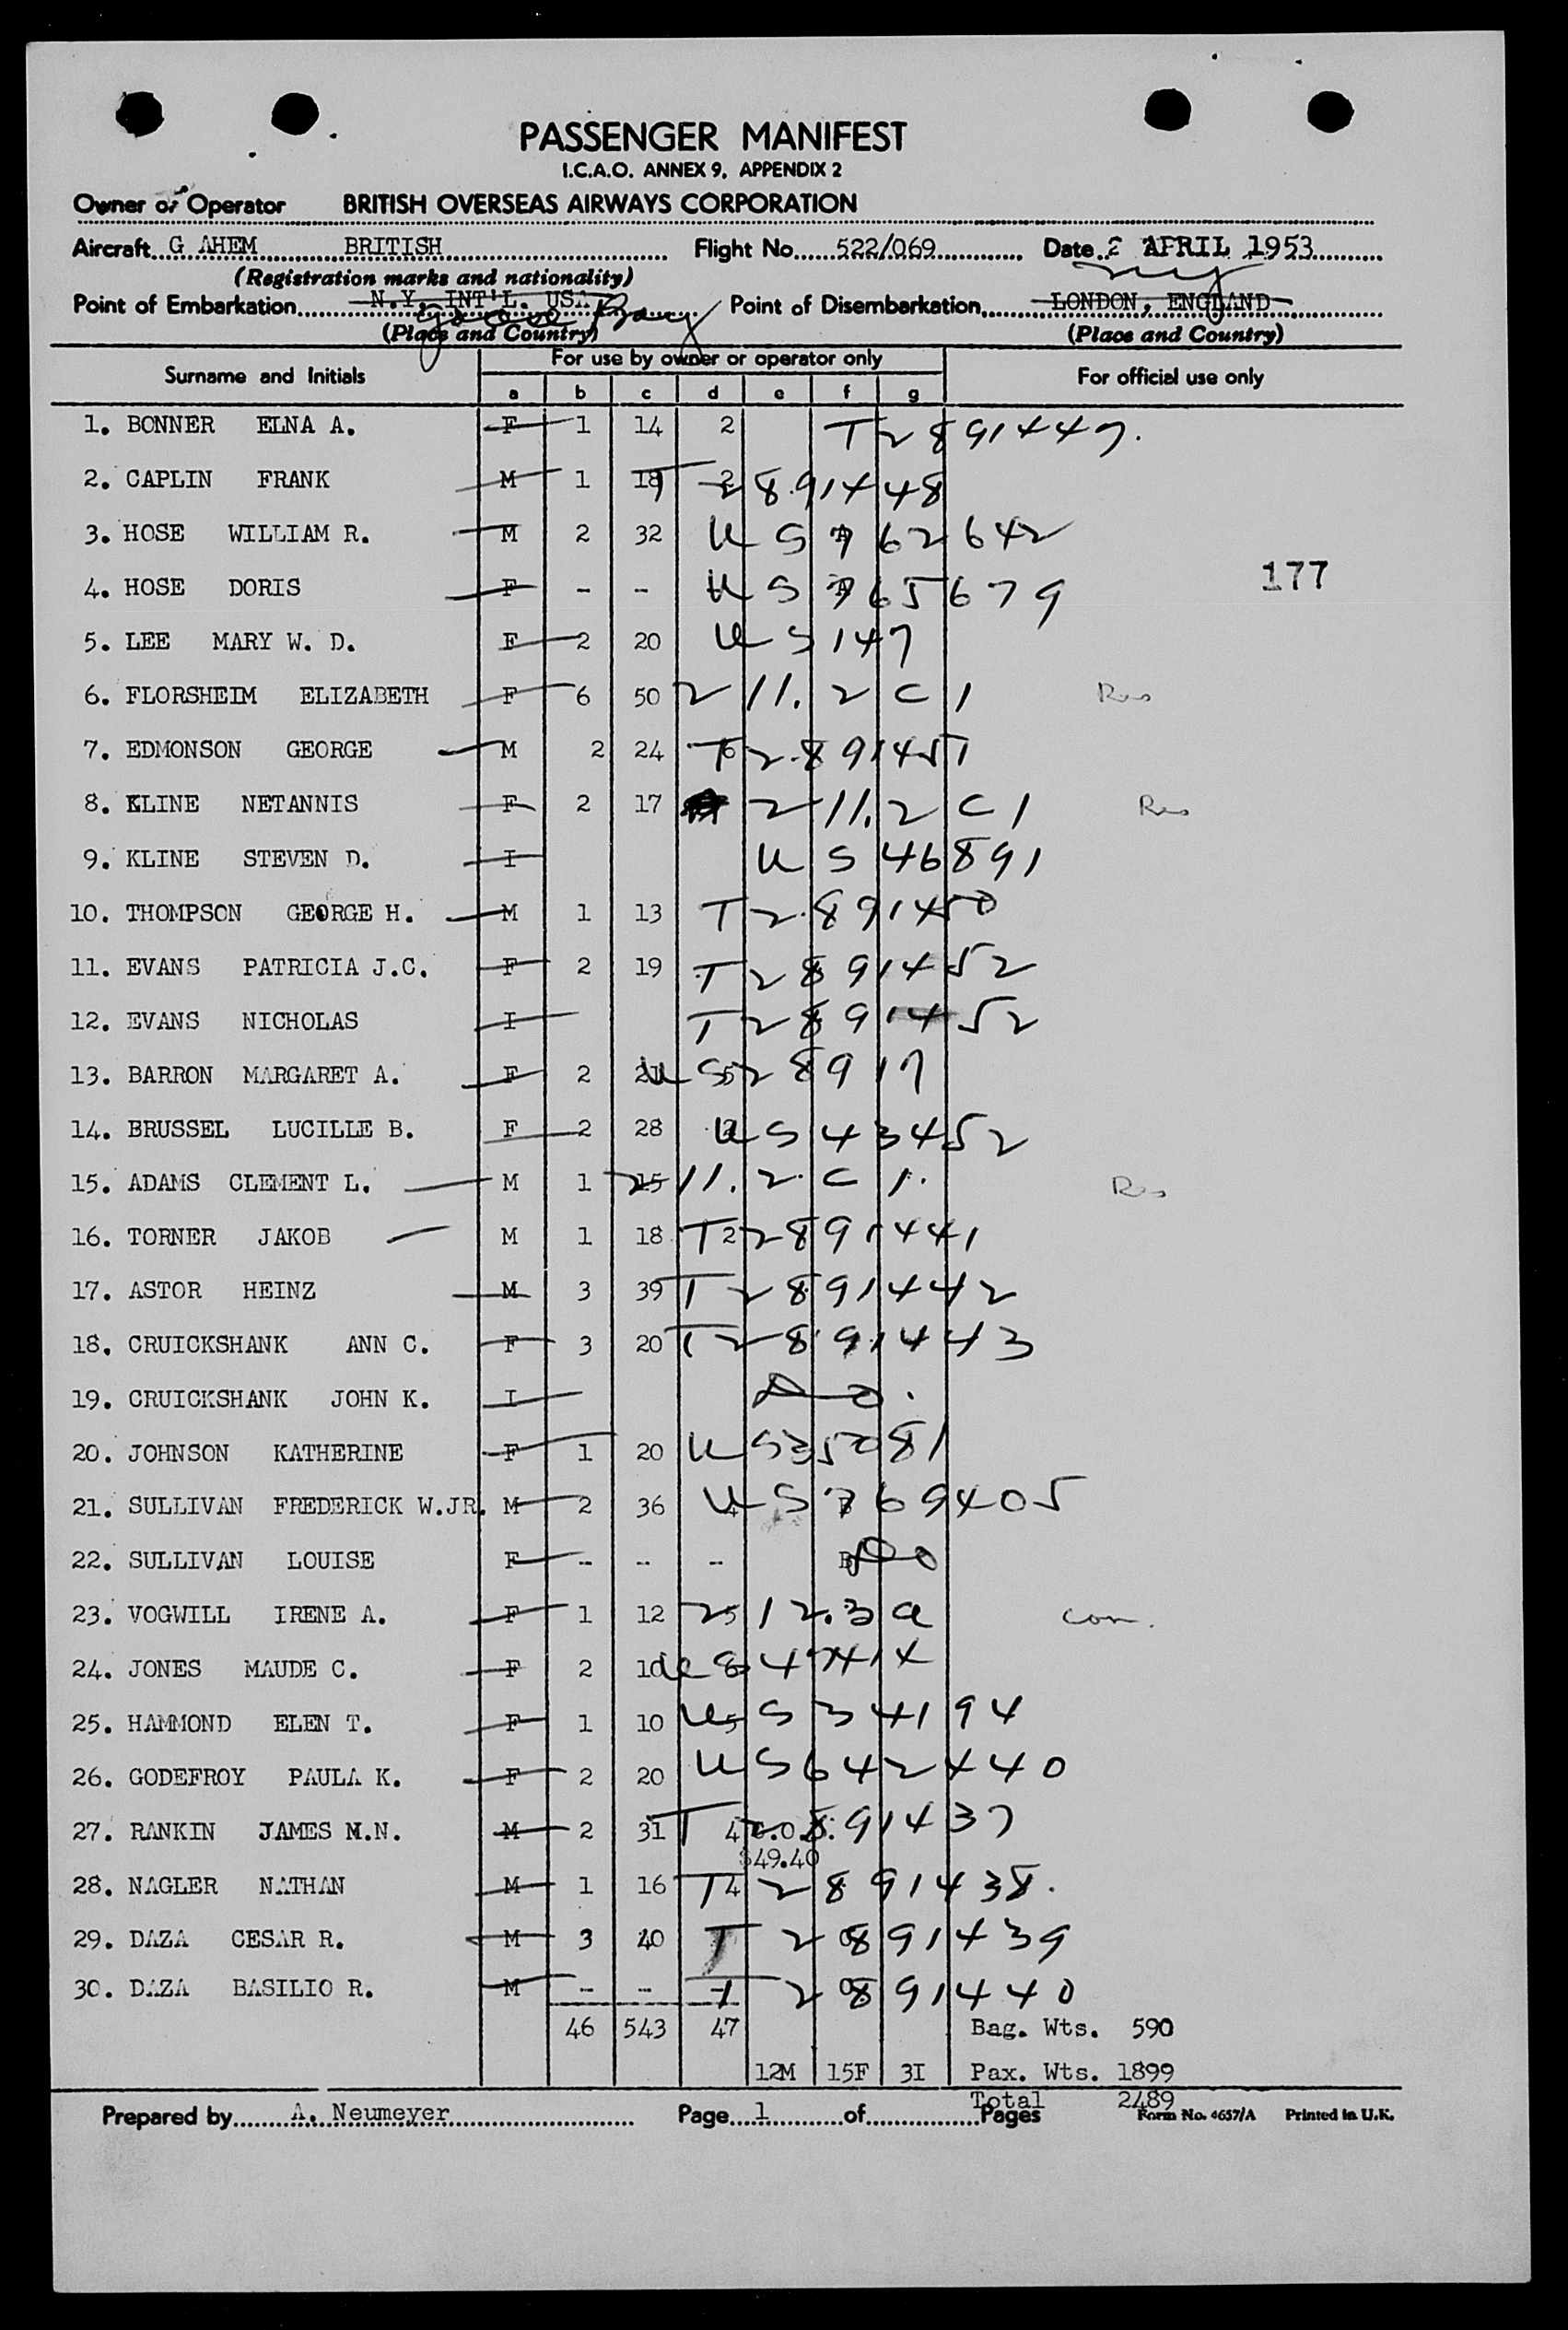 PASSENGER MANIFEST
I.C.A.O. ANNEX 9, APPENDIX 2
Owner or Operator BRITISH OVERSEAS AIRWAYS CORPORATION
Aircraft G AHEM BRITISH Flight No. 522/069 Date 2 APRIL 1953
(Registration marks and nationality) ny
Point of Embarkation N.Y. INT'L. USA Point of Disembarkation LONDON, ENGLAND
(Place and Country) (Place and Country)
Surname and Initials For use by owner or operator only For official use only
a b c d e f g
1. BONNER ELNA A. F 1 14 2 T2891447.
2. CAPLIN FRANK M 1 18 2 T2891448
3. HOSE WILLIAM R. M 2 32 US762642
4. HOSE DORIS F - - US765679
177
5. LEE MARY W. D. F 2 20 US147
6. FLORSHEIM ELIZABETH F 6 50 211.2C1 Res
7. EDMONSON GEORGE M 2 24 6 T2891451
8. KLINE NETANNIS F 2 17 211.2C1 Res
9. KLINE STEVEN D. I US46891
10. THOMPSON GEORGE H. M 1 13 T2891450
11. EVANS PATRICIA J.C. F 2 19 T2891452
12. EVANS NICHOLAS I T2891452
13. BARRON MARGARET A. F 2 21 5 US28917
14. BRUSSEL LUCILLE B. F 2 28 US43452
15. ADAMS CLEMENT L. M 1 15 211.2.C1. Res
16. TORNER JAKOB M 1 18 2 T2891441
17. ASTOR HEINZ M 3 39 T2891442
18. CRUICKSHANK ANN C. F 3 20 T2891443
19. CRUICKSHANK JOHN K. I Do.
20. JOHNSON KATHERINE F 1 20 US35081
21. SULLIVAN FREDERICK W.JR. M 2 36 4 US769405
22. SULLIVAN LOUISE F - - - B Do
23. VOGWILL IRENE A. F 1 12 5 212.3a Con.
24. JONES MAUDE C. F 2 10 US47414
25. HAMMOND ELEN T. F 1 10 5 US34194
26. GODEFROY PAULA K. F 2 20 US642440
27. RANKIN JAMES M.N. M 2 31 4 T2891437
$49.40
28. NAGLER NATHAN M 1 16 4 T2891438.
29. DAZA CESAR R. M 3 40 T2891439
30. DAZA BASILIO R. M - - - T2891440
46 543 47 Bag. Wts. 590
12M 15F 3I Pax. Wts. 1899
Total 2489
Prepared by A. Neumeyer Page 1 of Pages Form No. 4657/A Printed in U.K.